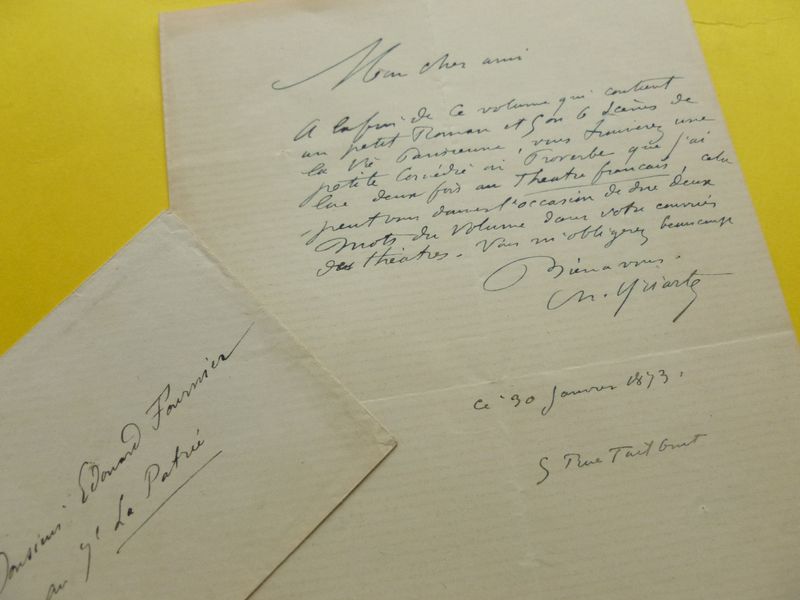 Mon cher ami
A la fin de ce volume qui contient
un petit Roman et 5 ou 6 Scènes de
la Vie Parisienne, vous trouverez une
petite Comédie ou Proverbe que j'ai
lue deux fois au Theatre français, cela
peut vous donner l'occasion de dire deux
mots du Volume dans votre courrier
des théatres. Vous m'obligerez beaucoup
Bien a vous.
Ch. Yriarte
Ce 30 Janvier 1873.
5 Rue Taitbout
Monsieur Edouard Fournier
au Jl La Patrie